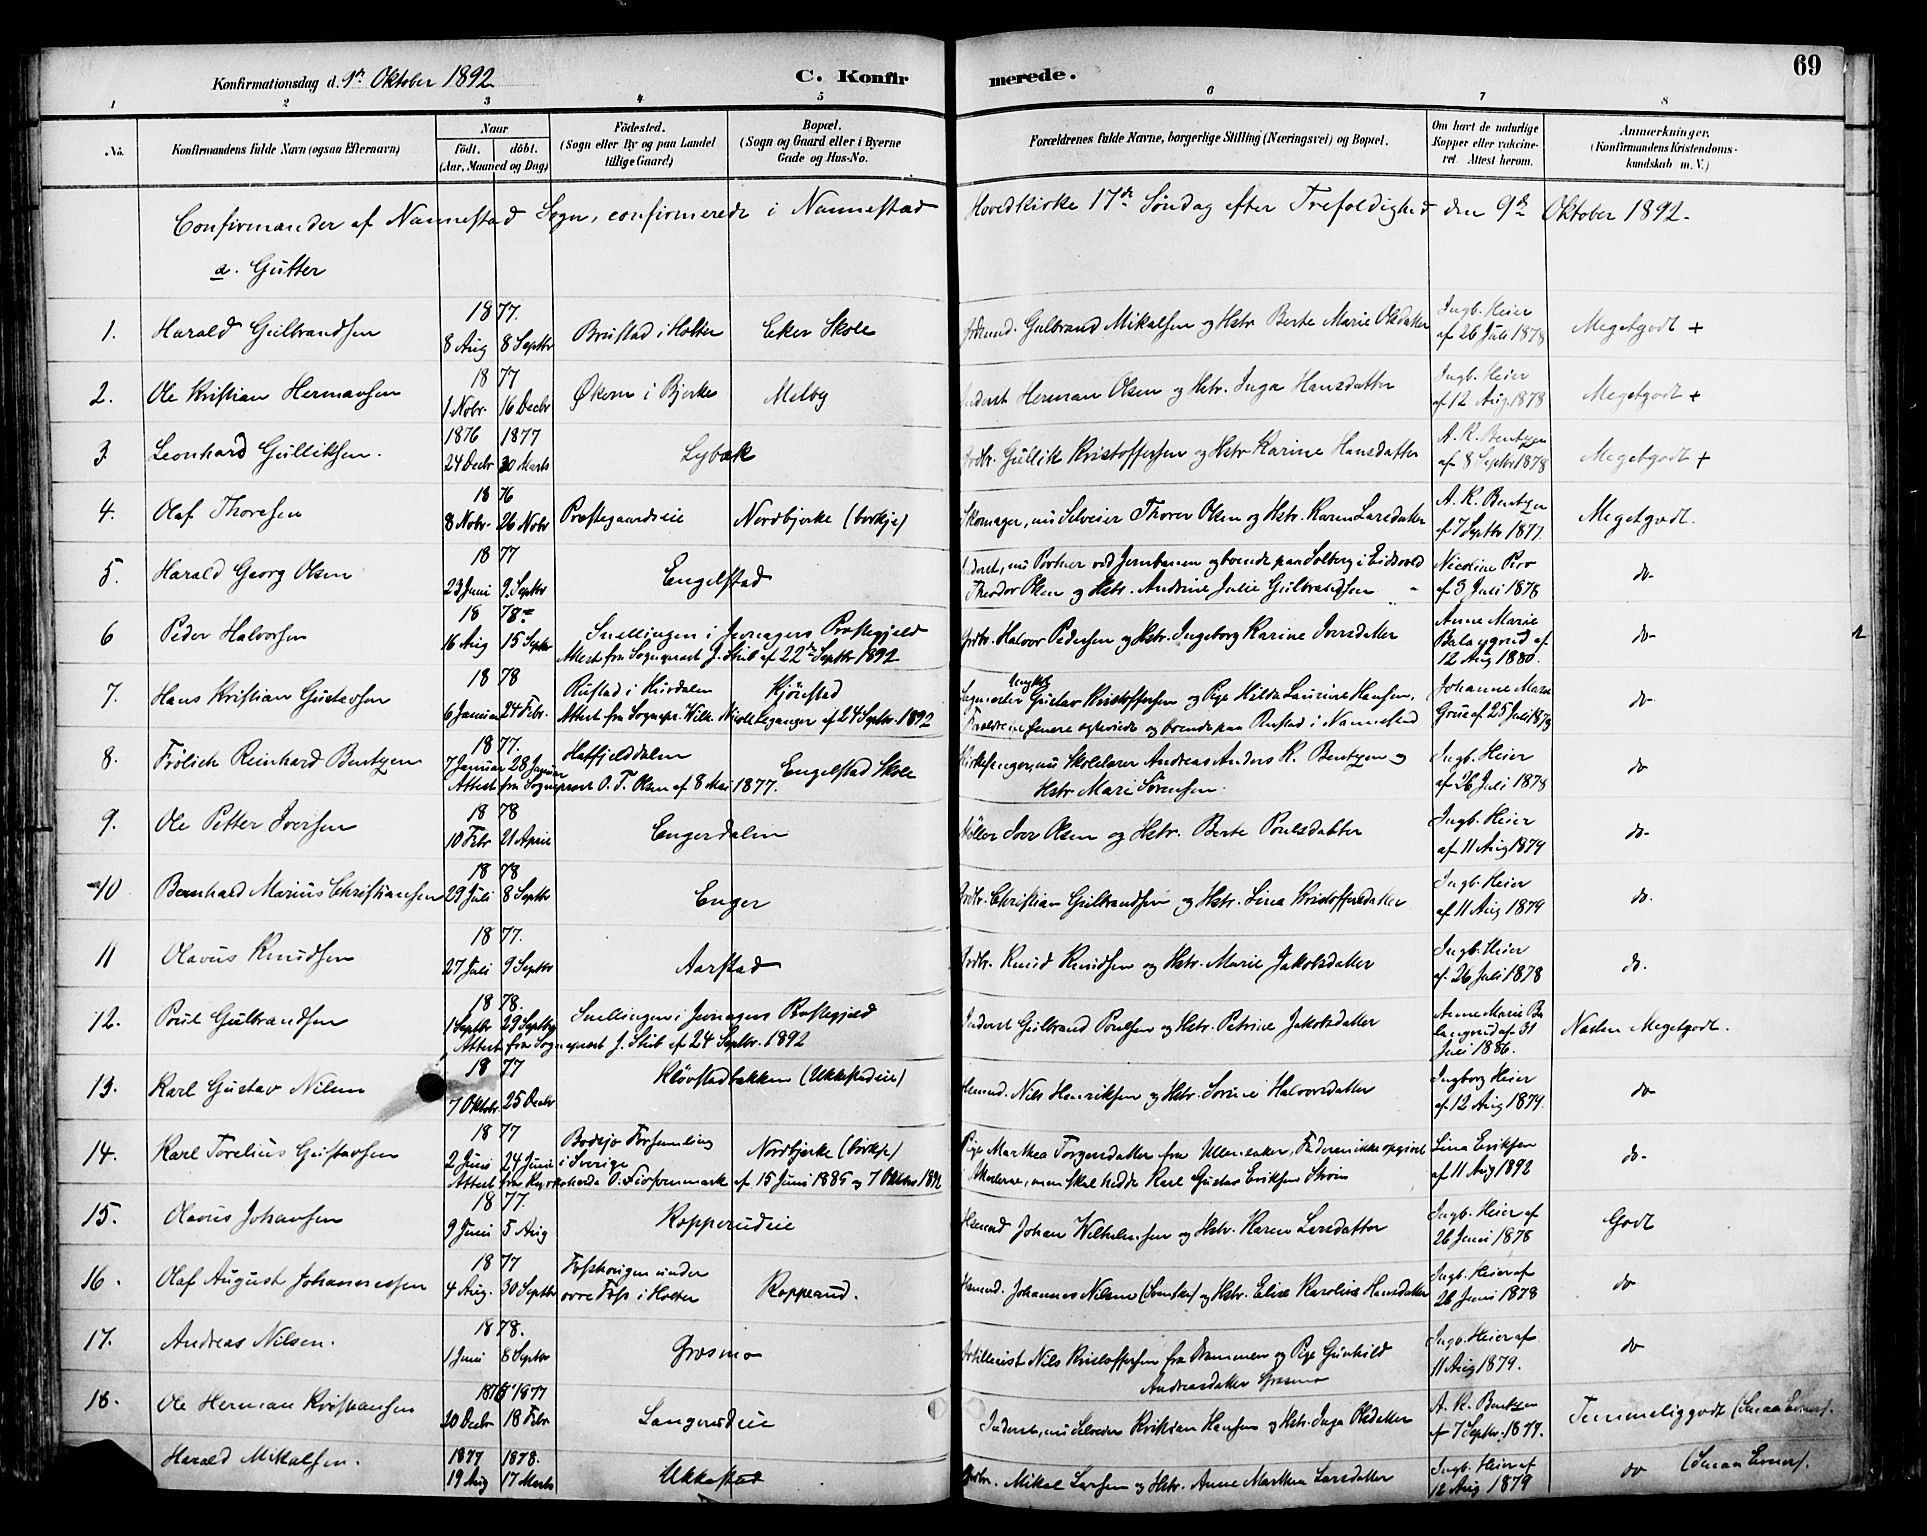 69
Konfirmationsdag d. 9de Oktober 1892
C. Konfirmerede.
1 2 3 4 5 6 7 8
No.
Konfirmandens fulde Navn (ogsaa Efternavn)
Naar
født. døbt.
(Aar, Maaned og Dag)
Födested.
(Sogn eller By og paa Landet
tillige Gaard.)
Bopæl.
(Sogn og Gaard eller i Byerne
Gade og Hus-No.
Forældrenes fulde Navne, borgerlige Stilling (Næringsvei) og Bopæl.
Om havt de naturlige
Kopper eller vakcine-
ret. Attest herom.
Anmærkninger.
(Konfirmandens Kristendoms-
kundskab m. V.)
Confirmander af Nannestad Sogn, confirmerede i Nannestad Hovedkirke 17de Søndag efter Trefoldighed den 9de Oktober 1892.
a. Gutter
1. Harald Gulbrandsen
1877.
8 Aug 8 Septbr
Brustad i Holter
Eker Skole
Gulbrand Mikalsen og Hstr Berte Marie Olsdatter
Ingb. Heier
af 26 Juli 1878
Megetgodt +
2. Ole Kristian Hermansen
1877
1 Nobr. 16 Decbr
Økern i Bjerke
Melby
Inderst Herman Olsen og Hstr. Inga Hansdatter
Ingb. Heier
af 12 Aug. 1878
Megetgodt +
3 Leonhard Gulliksen.
1876 1877
24 Decbr 30 Marts
Lybæk
Grdbr. Gullik Kristoffersen og Hstr Karine Hansdatter
A. K. Bentzen
af 8 Septbr 1878
Megetgodt +
4. Olaf Thoresen
1876
8 Nobr. 26 Nobr
Præstegaardseie
Nordbjerke
Skomager, nu Selveier Thorer Olsen og Hstr. Karen Larsdatter
A. K. Bentzen
af 7 Septbr 1877.
Megetgodt.
5. Harald Georg Olsen
1877
23 Juni 9. Septbr
Engelstad
Inderst, nu Portner ved Jernbanen og boende paa Solberg i Eidsvold
Theodor Olsen og Hstr. Andrine Julie Gulbrandsen
Nicoline Piro
af 3 Juli 1878
do-
6 Peder Halvorsen
1878
16 Aug 15 Septbr
Snellingen i Jevnagers Præstegjeld
Attest fra Sogneprest J. Stub af 22de Septbr 1892
Grdbr. Halvor Pedersen og Hstr. Ingeborg Karine Iversdatter
Anne Marie
Balangrud af
12 Aug 1880.
do-
7. Hans Kristian Gustavsen
1878
6 Januar 24 Febr.
Rustad i Hurdalen
Kjörstad
Attest fra Sognepr. Wilh. af 24 Septbr. 1892
Ungkl
Gustav Kristoffersen og Pige Hilda Laurine Hansen,
Forældrene senere egteviede og boende paa Rustad i Nannestad
Johanne Marie
Grue af 25 Juli 1879
do-
8. Frölich Reinhard Bentzen
1877.
7 Januar 28 Januar
Hatfjelddalen
Engelstad Skole
Attest fra Sogneprest O. T. Olsen af 8 Mai 1877.
Kirkesanger, nu Skolelærer Andreas Anders K. Bentzen og
Hstr Marie Sörensen.
Ingb. Heier
af 26 Juli 1878
do
9. Ole Petter Iversen
1878
10 Febr 21 April
Engerdalen
Möller Iver Olsen og Hstr. Berte Poulsdatter
Ingb. Heier
af 11 Aug 1879
do-
10 Bernhard Marius Christiansen
1878
29 Juli 8 Septbr
Enger
Grdbr. Christian Gulbrandsen og Hstr. Lina Kristoffersdatter
Ingb. Heier
af 11 Aug 1879
do.
11 Olavus Knudsen
1877.
27 Juli 9 Septbr
Aarstad
Grdbr. Knud Knudsen og Hstr. Marie Jakobsdatter
Ingb. Heier
af. 26 Juli 1878
do.
12. Poul Gulbrandsen
1878.
1 Septbr 29 Septbr
Snellingen i Jevnagers Præstegjeld
Attest fra Sogneprest J. Stub af 24 Septbr. 1892
Inderst Gulbrand Poulsen og Hstr. Petrine Jakobsdatter
Anne Marie Ba
langrud af 31
Juli 1886.
Næsten Megetgodt.
13. Karl Gustav Nilsen
1877
7 Oktobr. 25 Decbr
Klövstadbakken (Ukkestadeie)
Husmd. Nils Henriksen og Hstr. Sorine Halvorsdatter
Ingborg Heier
af 12 Aug 1879.
do
14. Karl Torelius Gustavsen
1877
2 Juni 24 Juni
Bodsjö Forsamling
i Sverige
Nordbjerke
Attest fra Kyrkoherde O. af 15 Juni 1885 og 7 Oktober 1892
Pige Marthea Torgersdatter fra Ullensaker, Faderen ikke opgivet
i Attesterne, men skal hedde Karl Gustav Eriksen Ström
Lina Eriksen
af 11 Aug 1892
do-
15. Olavus Johansen
1877.
9 Juni 5 Aug
Kopperudeie
Husmd Johan Wilhelmsen og Hstr. Karen Larsdatter
Ingb. Heier af
26 Juni 1878
Godt
16. Olaf August Johannessen
1877
4 Aug. 30 Septbr
under
övre Foss i Holter
Kopperud.
Husmd. Johannes Nilsen (Svensker) og Hstr. Elise Karoline Hansdatter
Ingb. Heier af
26 Juni 1878
do
17. Andreas Nilsen.
1878.
1 Juni 8 Septbr
Græsmo
Artillerist Nils Kristoffersen fra Drammen og Pige Gunhild
Andreasdatter Græsmo
Ingb. Heier af
11 Aug 1879.
do
18. Ole Herman Kristiansen
1876 1877
20 Decbr 18 Febr
Langerudeie
Inderst, nu Selveier Kristian Hansen og Hstr. Inga Olsdatter
A. K. Bentzen
af 7 Septbr. 1877.
Temmeliggodt (Smaa Evner).
Harald Mikalsen.
1877 1878.
19 Aug 17 Marts
Ukkestad
Grdbr. Mikal Larsen og Hstr. Anne Marthea Larsdatter
Ingb. Heier af
12 Aug 1879
do (Smaa Evner).